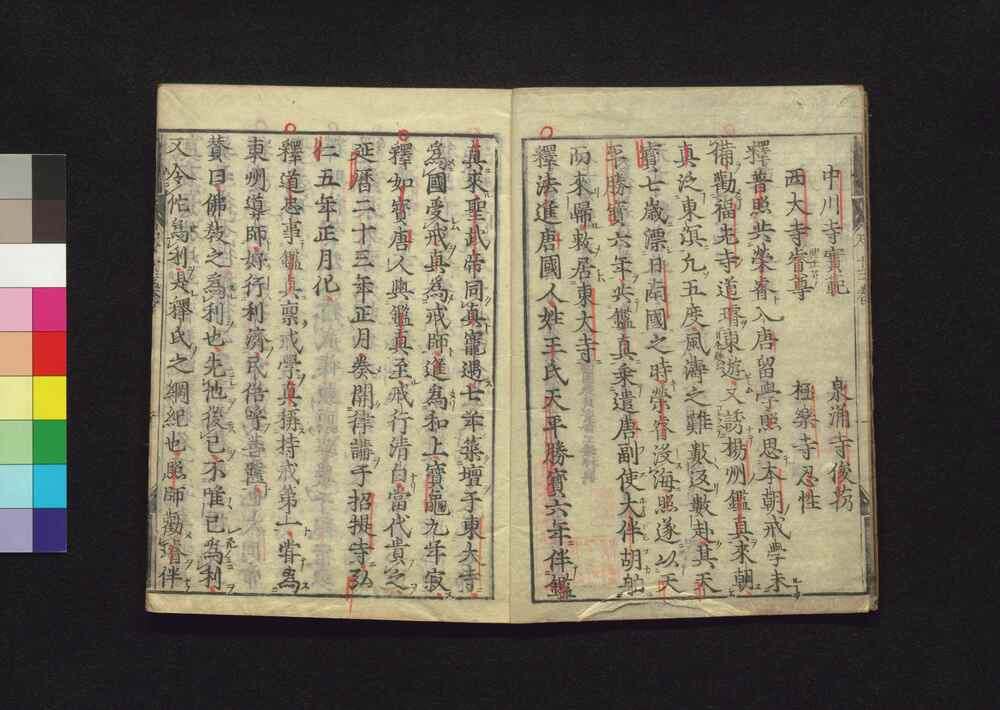 中川寺實範　泉涌寺俊芿
西大寺睿尊　極樂寺忍性
釋普照共榮睿入唐留學照思本朝戒學未
備勸福先寺道璿東遊又誘揚州鑑真來朝
真泛東溟九五度風濤之難數返數赴其天
寶七歲漂日南國之時榮睿沒海照遂以天
平勝寶六年共鑑真乗遣唐副使大伴胡
而來歸敕居東大寺
釋法進唐國人姓王氏天平勝寶六年伴鑑
真來聖武帝同真寵遇七年築壇于東大寺
為國受戒真為戒師進為和上寶龜九年寂
釋如寶唐人與鑑真至戒行清白當代貴之
延曆二十三年正月奏開律講于招提寺弘
仁五年正月化
釋道忠事鑑真稟戒學真稱持戒第一嘗為
東州導師好行利濟民俗呼菩薩
賛曰佛教之為利也先他後己不唯己為利
又令他為利是釋氏之綱紀也照師勸睿伴